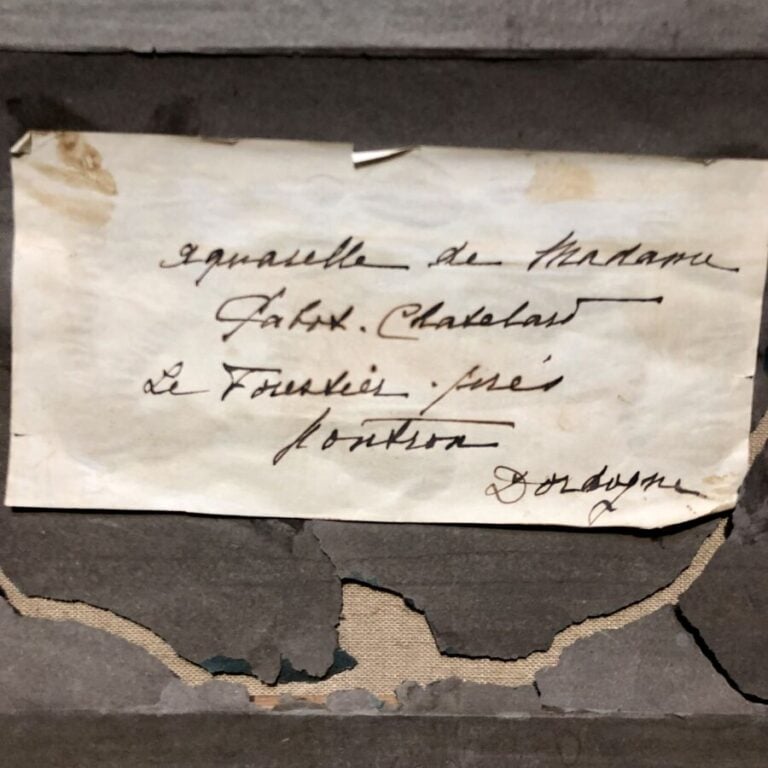 Aquarelle de Madame
Pabot. Chatelard
Le Forestier. près
Nontron
Dordogne